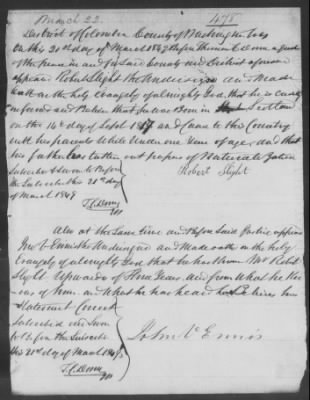 March 22. 478
District of Columbia County of Washington
on this 21st day of March 1849 before
the peace in and for said County and District aforesaid
appears Robert Slight the and made
oath on the holy Evangely of almighty God, that he is
informed and Believe that he was Born in
on the 14th day of Sept 1817 and Came to this Country
with his parents While Under one Year of age, and that
his father has taken out papers of
Subscribed & Sworn to Before
the Subscriber this 21st day
of March 1849
Robert Slight
Also at the same time and before said Justice appears
and made oath on the holy
Evangely of almighty God that he has known Mr Robt
Slight Upwards of three Years and from What he
of him and What he has heard he Believes his
Statement Correct
Subscribed and Sworn
to Before the Subscriber
this 21st day of March
John Ennis